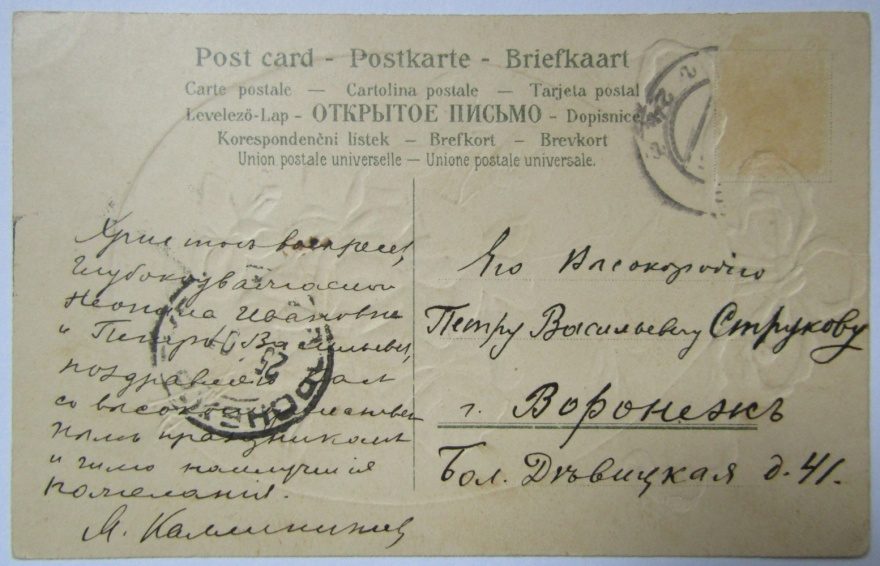 Post card - Postkarte - Briefkaart
Carte postale — Cartolina postale — Tarjeta postal
Levelező-Lap - ОТКРЫТОЕ ПИСЬМО - Dopisnice
Korespondenční lístek — Brefkort — Brevkort
Union postale universelle — Unione postale universale.
Христосъ воскресе,
Глубокоуважаемой
Ивановна
и Петръ Васильевич,
поздравляю Васъ
со
нымъ праздникомъ
и шлю наилучшія
пожеланія.
М.
Его Высокородію
Петру Васильевичу Струкову
г. Воронежъ
Бол. Дѣвицкая д. 41.
25